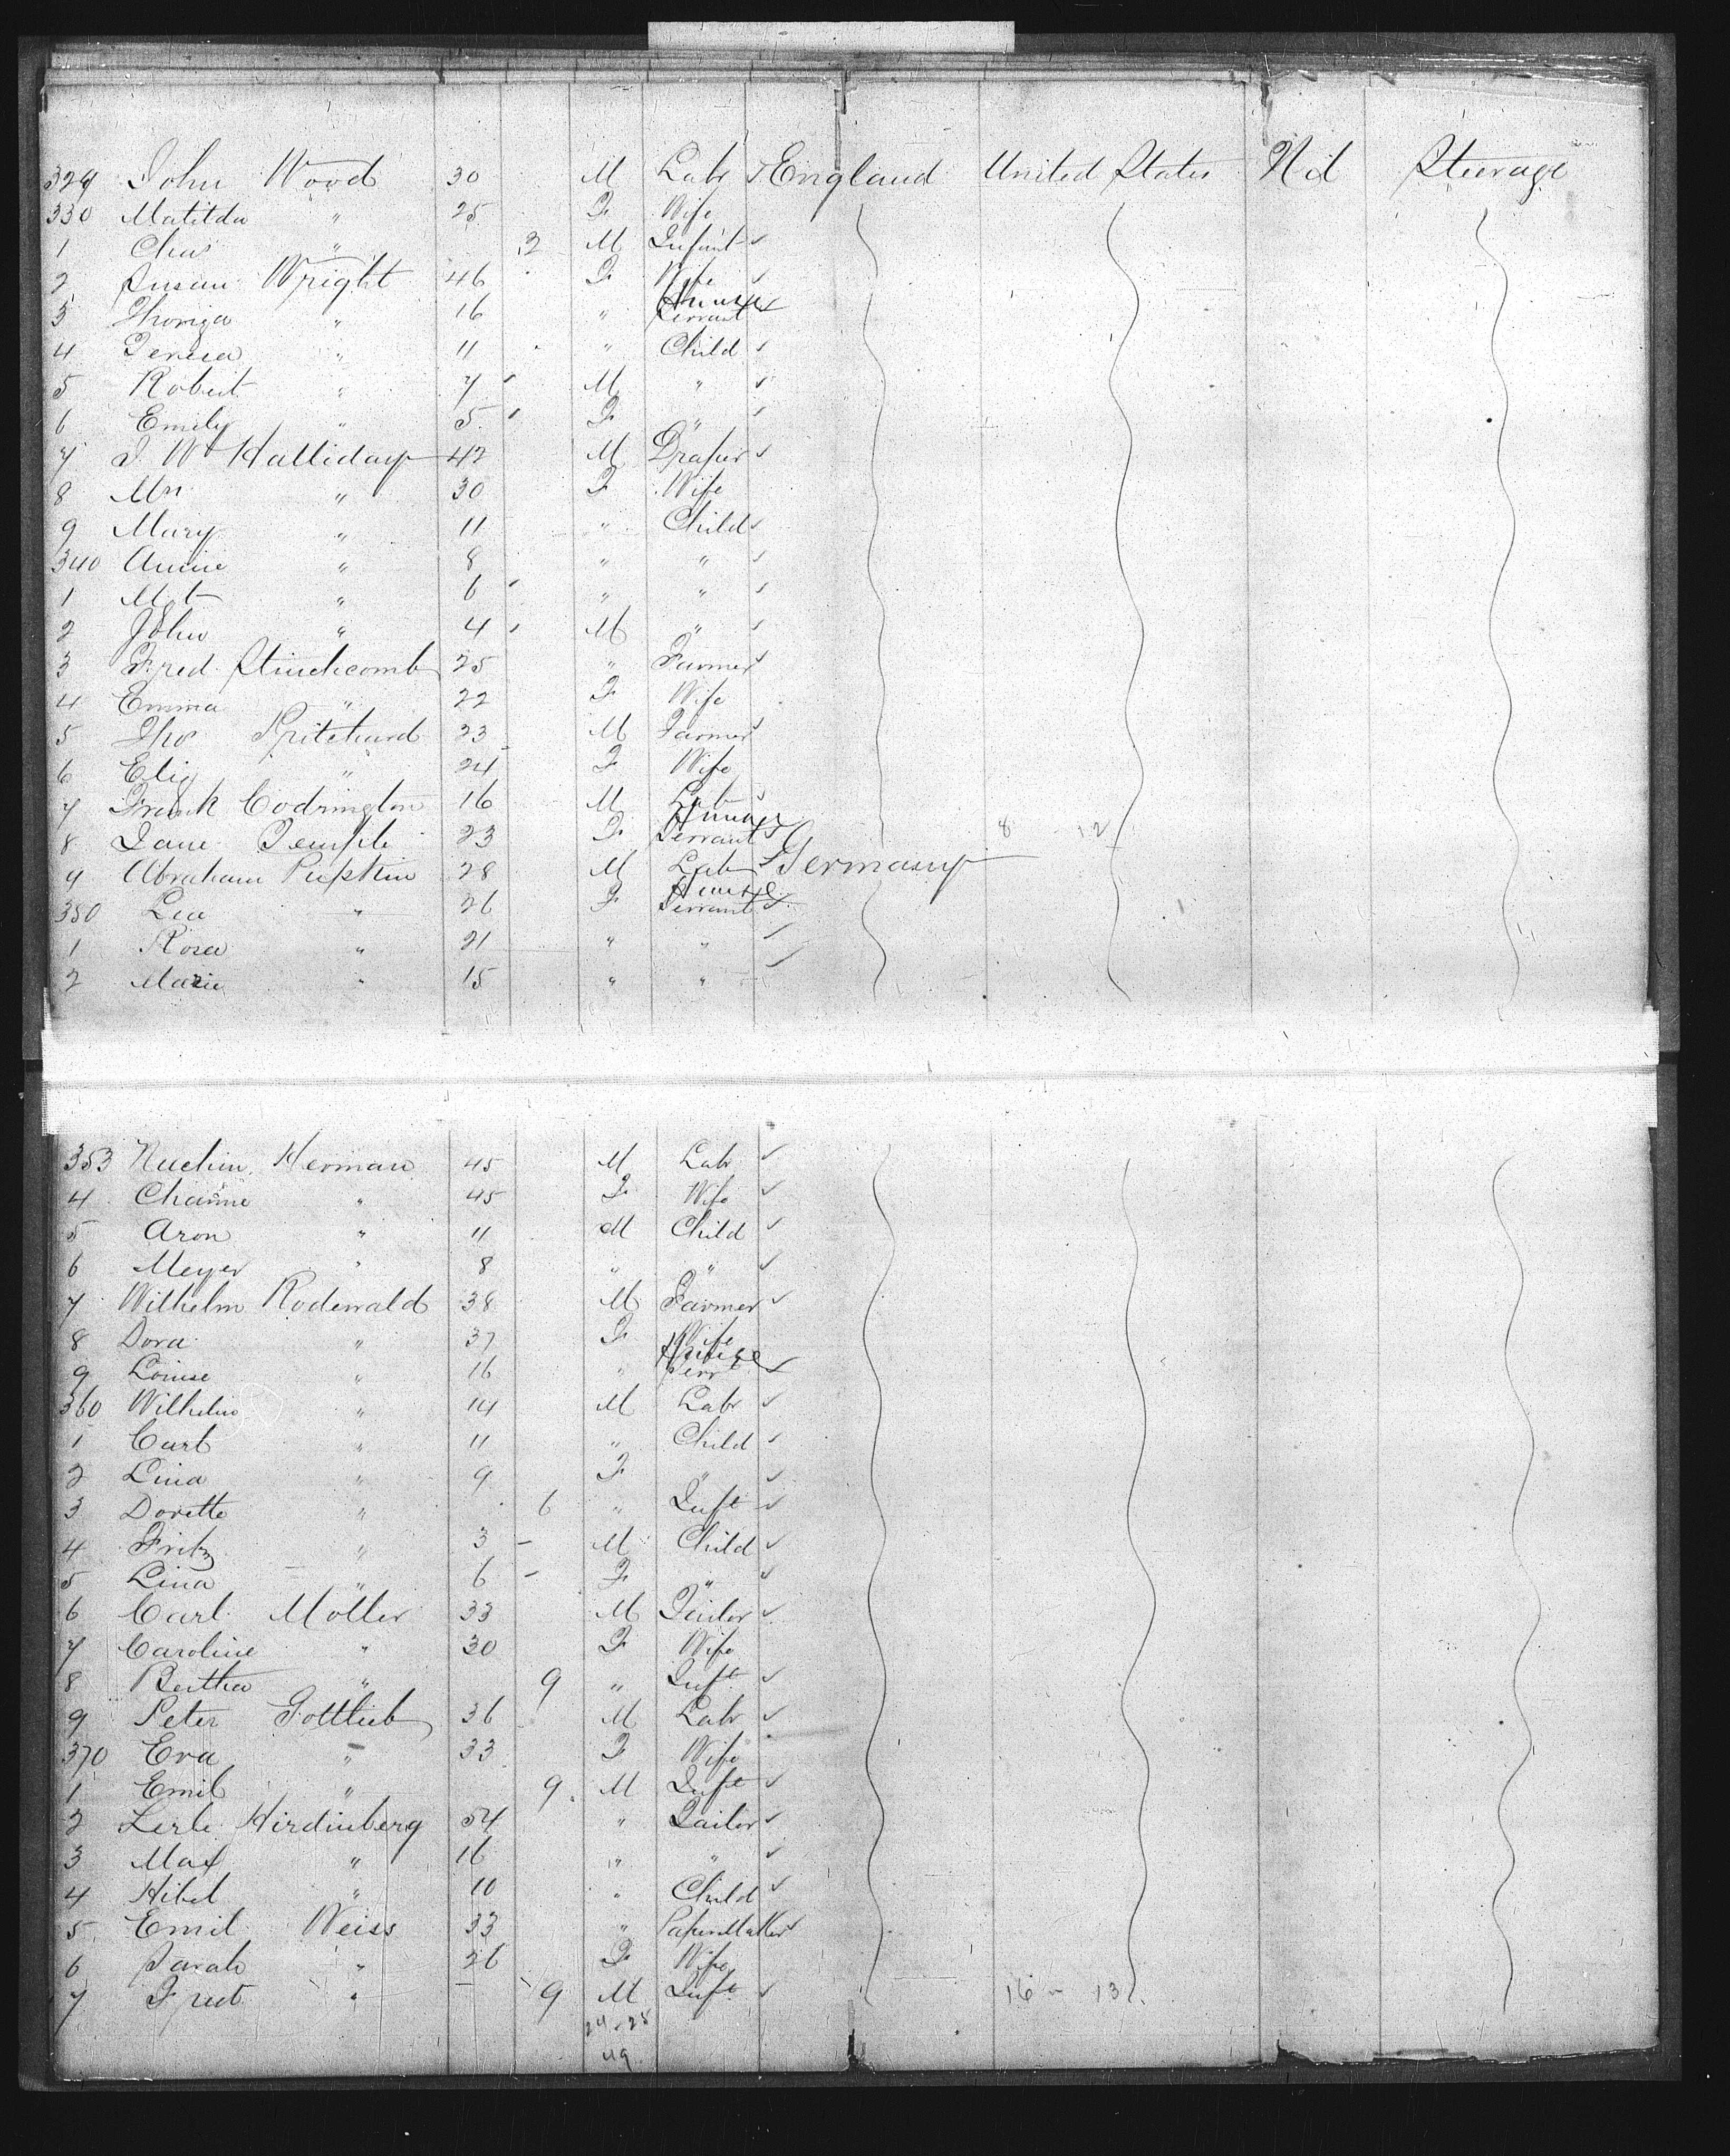 329 John Wood 30 M Labr England United States Nil Steerage
330 Matilda " 25 F Wife
1 Chas " 2 M Infant
2 Susan Wright 46 F Wife
3 " 16 " House Servant
4 Teresa " 11 " Child
5 Robert " 7 M "
6 Emily " 5 F "
7 J W Halliday 42 M Draper
8 Mrs " 30 F Wife
9 Mary " 11 " Child
340 Annie " 8 " "
1 " 6 " "
2 John " 4 M "
3 Fred Stinchcomb 25 " Farmer
4 Emma " 22 F Wife
5 Thos Pritchard 23 M Farmer
6 Eliz " 24 F Wife
7 Frank Codrington 16 M Labr
8 Jane Temple 23 F House Servant 8 - 12
9 Abraham Pupkin 28 M Labr Germany
350 Lea " 26 F House Servant
1 Rosa " 21 " "
2 Marie " 15 " "
353 Nuchim Herman 45 M Labr
4 Channe " 45 F Wife
5 Aron " 11 M Child
6 Meyer " 8 " "
7 Wilhelm Rodewald 38 M Farmer
8 Dora " 37 F Wife
9 Louise " 16 " House Servt
360 Wilhelm " 14 M Labr
1 Carl " 11 " Child
2 Lina " 9 F "
3 Dorette " 6 " Inft
4 Fritz " 3 - M Child
5 Lina " 6 - F "
6 Carl Moller 33 M Tailor
7 Caroline " 30 F Wife
8 Bertha " 9 " Inft
9 Peter Gottlieb 36 M Labr
370 Eva " 33 F Wife
1 Emil " 9 M Inft
2 Hirdinberg 54 " Tailor
3 Max " 16 " "
4 Hibel " 10 " Child
5 Emil Weiss 33 " PaperMaker
6 Sarah " 26 F Wife
7 " 9 M Inft 16 - 13
24-25
49